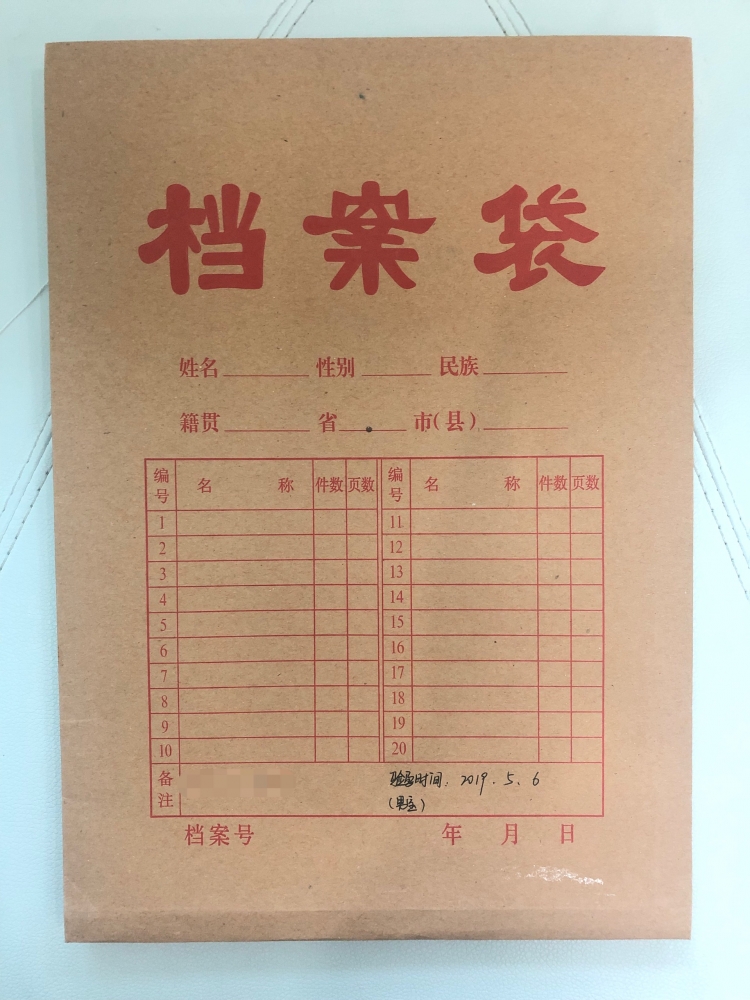 档案袋
姓名 性别 民族
籍贯 省 市(县)
编号 名 称 件数 页数 编号 名 称 件数 页数
1 11
2 12
3 13
4 14
5 15
6 16
7 17
8 18
9 19
10 20
备注 时间: 2019.5.6
档案号 年 月 日